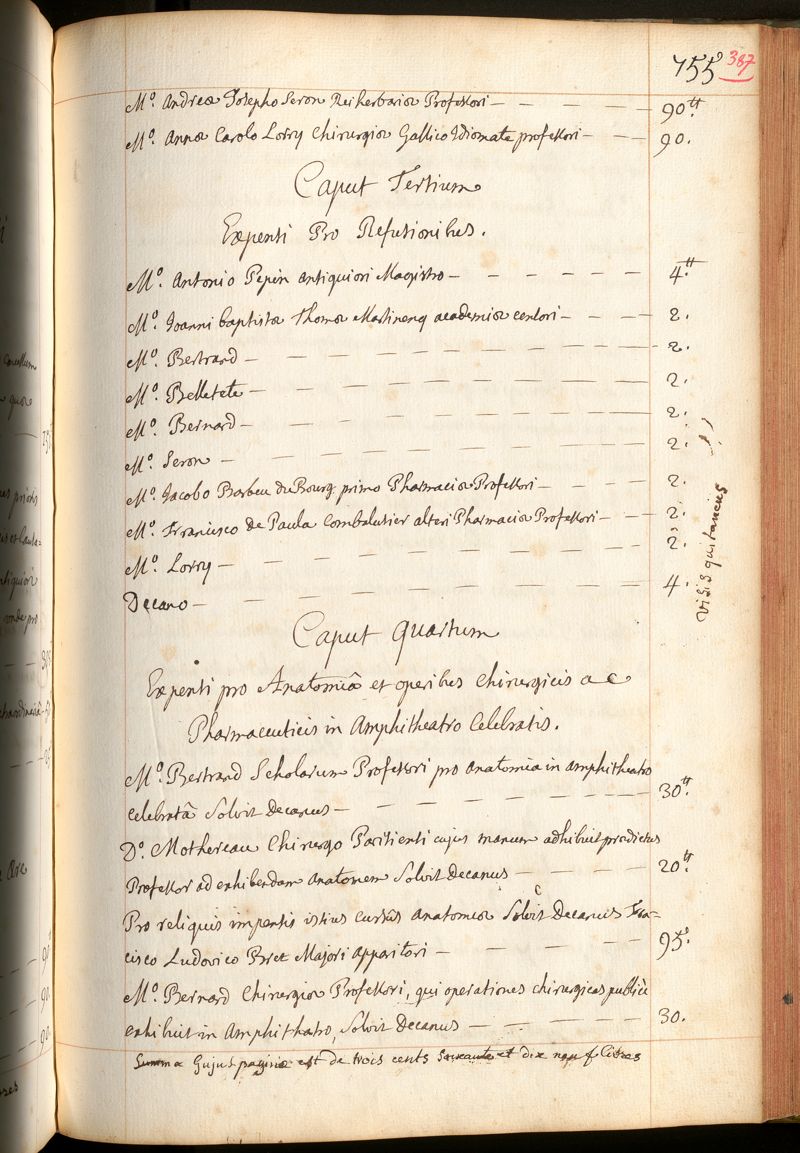 755 387
M.º Andreæ Josepho Seron Rei herbariæ Professori — 90.tt
M.º Annæ Carolo Lorry Chirurgiæ Gallico Idiomate professori — 90.
Caput Tertium
Expensi Pro Refusionibus.
M.º Antonio Pepin antiquiori Magistro — 4.tt
M.º Joanni baptistæ Thomæ Martinenq academiæ censori — 2.
M.º Bertrand — 2.
M.º Belletete — 2.
M.º Bernard — 2.
M.º Seron — 2.
M.º Jacobo Barbeu duBourg primo Pharmaciæ Professori — 2.
M.º Francisco de Paula Combalusier alteri Pharmaciæ Professori — 2.
M.º Lorry — 2.
Decano — 4.
visis quitanciis
Caput Quartum
Expensi pro Anatomiâ et operibus Chirurgicis ac
Pharmaceuticis in Amphitheatro Celebratis.
M.º Bertrand Scholarum Professori pro anatomia in amphitheatro
celebratâ Solvit Decanus — 30.tt
D.º Mothereau Chirurgo Parisienti cujus manum adhibuit prædictus
Professor ad exhibendam anatomem Solvit Decanus — 20.tt
Pro reliquis impensis istius cursûs anatomiæ Solvit Decanus Fran=
cisco Ludovico Bret Majori Apparitori — 95.
M.º Bernard Chirurgiæ Professori, qui operationes chirurgicas publicè
exhibuit in Amphitheatro, Solvit Decanus — 30.
Summa hujus paginæ est de trois cents Soixante et dix neuf Livres